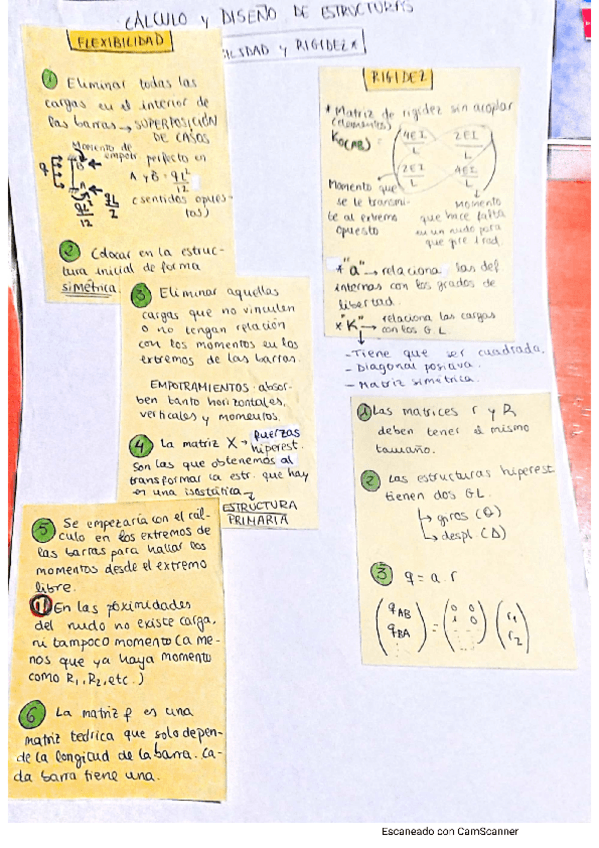 CÁLCULO y DISEÑO DE ESTRUCTURAS
FLEXIBILIDAD y RIGIDEZ*
FLEXIBILIDAD
1 Eliminar todas las
cargas en el interior de
las barras → SUPERPOSICIÓN
DE CASOS
Momento de
empotr. perfecto en
A y B = qL²/12
(sentidos opues-
tos)
q
qL²/12
qL/2
2 Colocar en la estruc-
tura inicial de forma
simétrica.
3 Eliminar aquellas
cargas que no vinculen
o no tengan relación
con los momentos en los
extremos de las barras.
EMPOTRAMIENTOS: absor-
ben tanto horizontales,
verticales y momentos.
4 La matriz X → fuerzas
hiperest.
Son las que obtenemos al
transformar la estr. que hay
en una isostática
ESTRUCTURA
PRIMARIA
5 Se empezaría con el cál-
culo en los extremos de
las barras para hallar los
momentos desde el extremo
libre.
¡! En las proximidades
del nudo no existe carga,
ni tampoco momento (a me-
nos que ya haya momento
como R1, R2, etc.)
6 La matriz f es una
matriz teórica que solo depen-
de la longitud de la barra. Ca-
da barra tiene una.
RIGIDEZ
* Matriz de rigidez sin acoplar
(elementos)
K0(AB) =
4EI/L 2EI/L
2EI/L 4EI/L
Momento que
se le transmi-
te al extremo
opuesto
Momento
que hace falta
en un nudo para
que gire 1 rad.
* "a" → relaciona las def
internas con los grados de
libertad.
* "K" → relaciona las cargas
con los G.L.
- Tiene que ser cuadrada.
- Diagonal positiva.
- Matriz simétrica.
1 Las matrices r y R
deben tener el mismo
tamaño.
2 Las estructuras hiperest.
tienen dos GL.
↳ giros (θ)
↳ despl (Δ)
3 q = a . r
(qAB qBA ...) = (0 0 1 0 ...) (r1 r2)
Escaneado con CamScanner